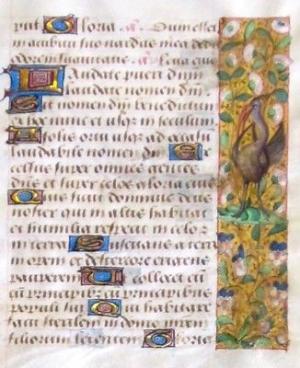 Gloria Dum esset
in acubitu suo nardus mea dedit
odorem suavitatis
Laudate pueri dñm
laudate nomen dñi
Sit nomen dñi benedictum
ex hoc nunc et usq in seculum
A solis ortu usq ad occasu
laudabile nomen dñi Ex
celsus super omnes gentes
dñs et super celos gloria eius
Quis sicut dominus deus
noster qui in altis habitat
et humilia respicit in celo et
in terra Suscitans a terra
inopem et de stercore erigens
pauperem Ut collocet eu
cum principibus cu principibus
populi sui Qui habitare
facit sterilem in domo matrem
filiorum letantem Gloria